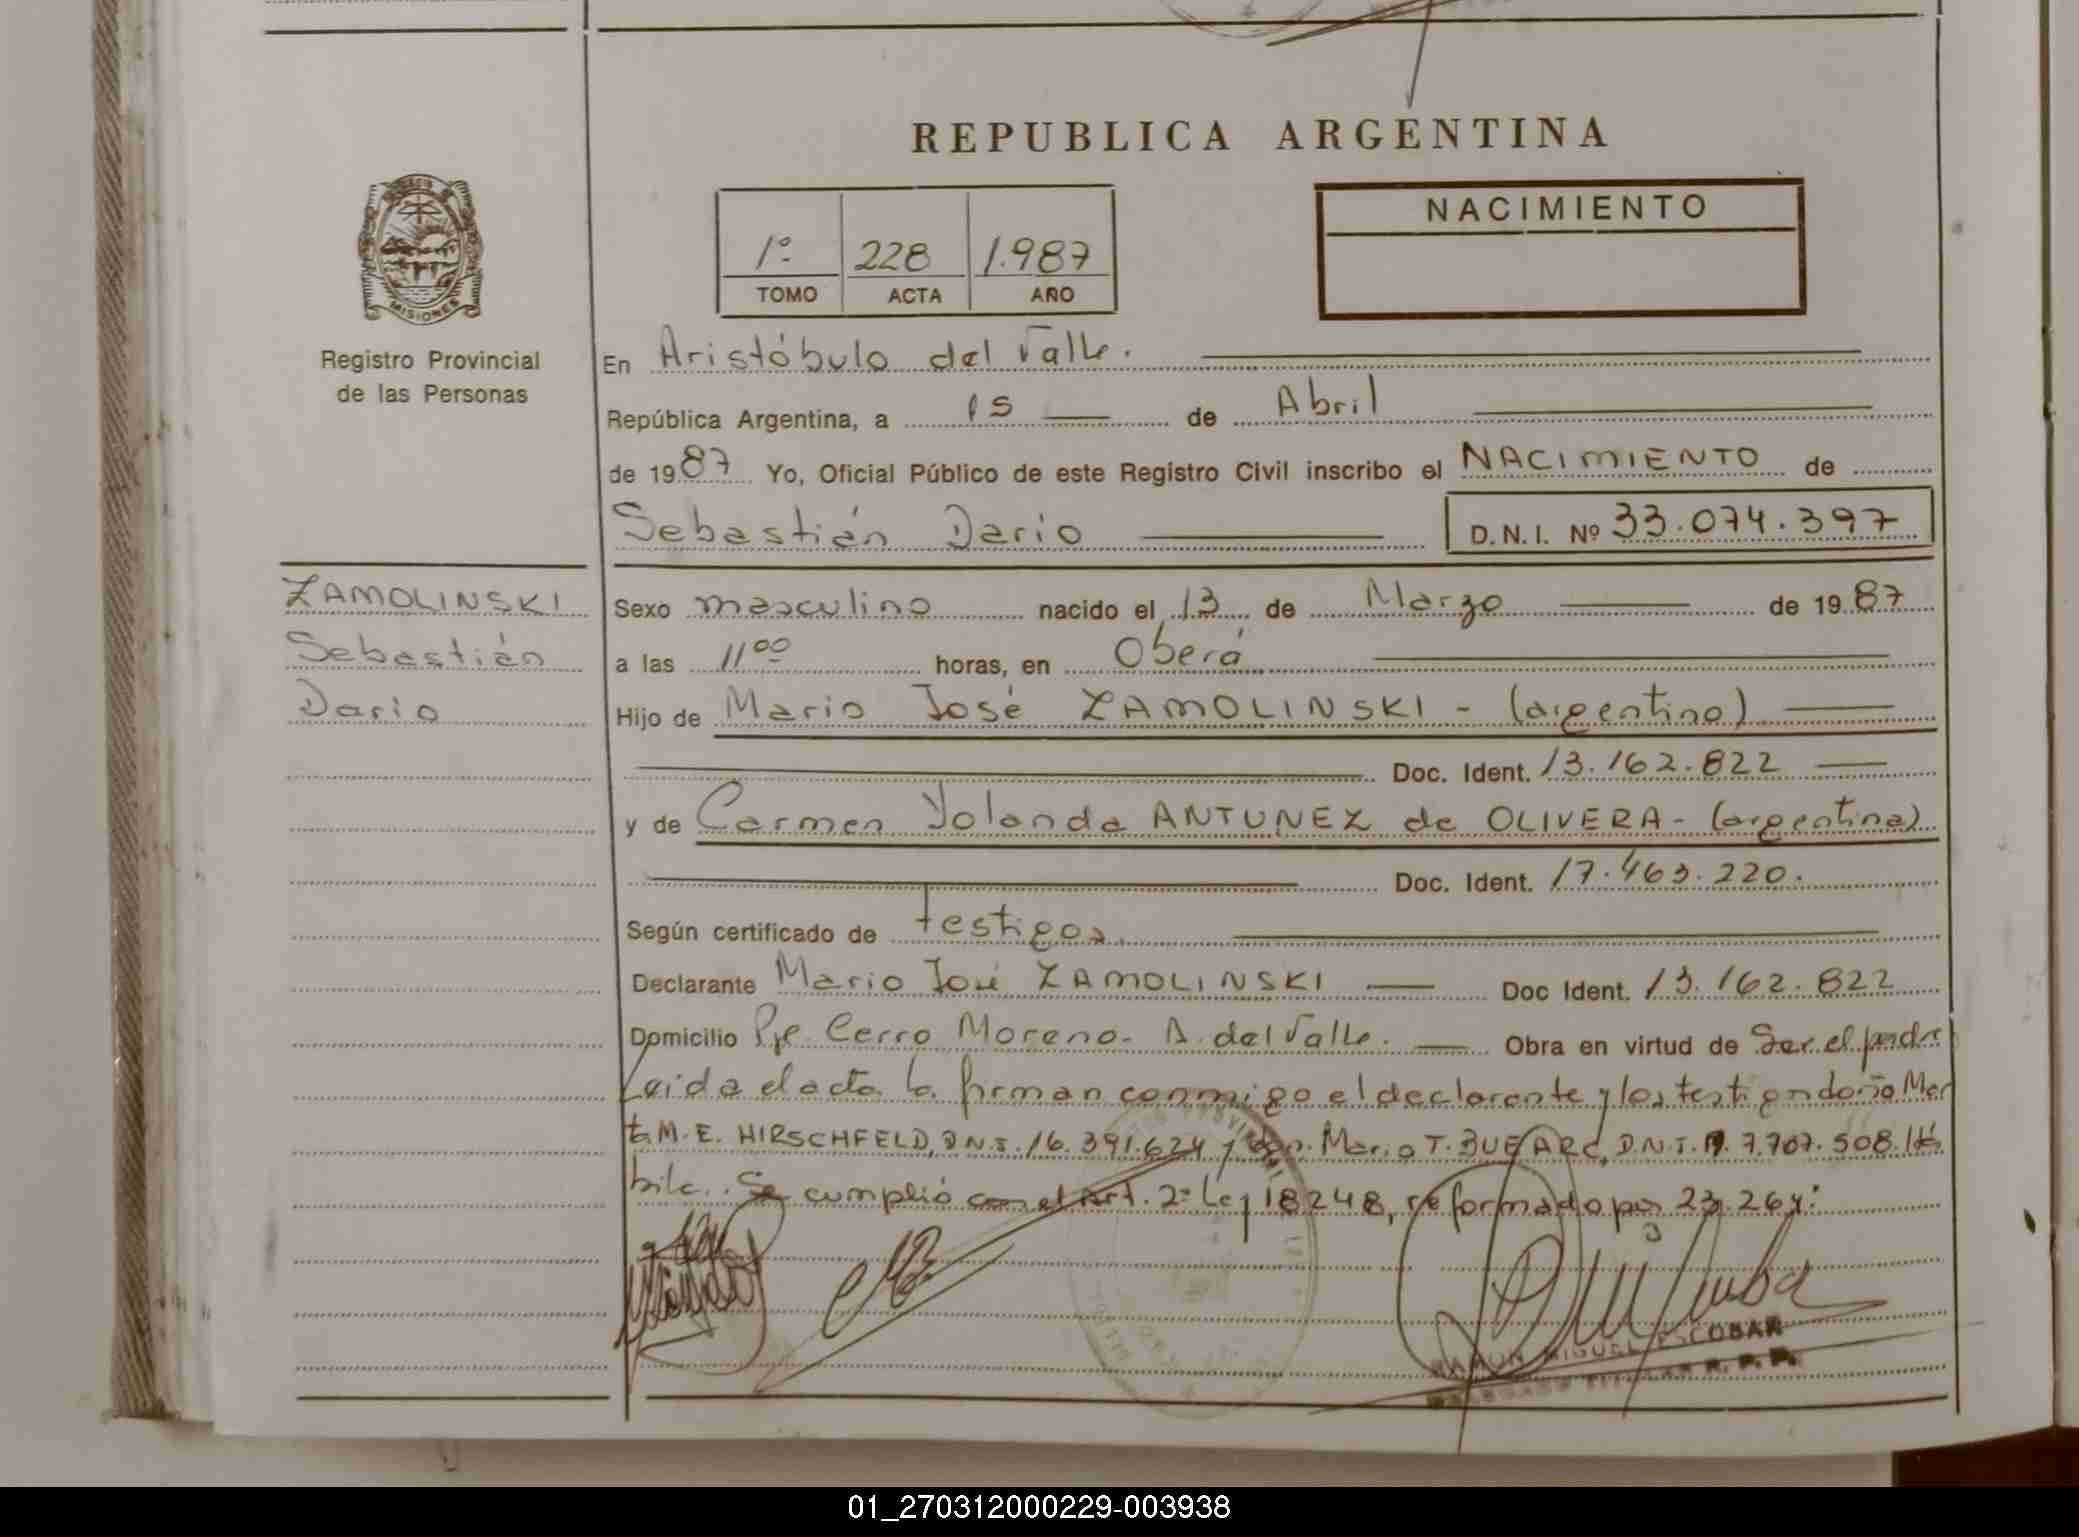 REPUBLICA ARGENTINA
1º 228 1.987
TOMO ACTA AÑO
NACIMIENTO
MISIONES
Registro Provincial
de las Personas
En Aristóbulo del Valle.
República Argentina, a 15 de Abril
de 1987 Yo, Oficial Público de este Registro Civil inscribo el NACIMIENTO de
Sebastián Dario D.N.I. Nº 33.074.397
ZAMOLINSKI
Sebastián
Dario
Sexo masculino nacido el 13 de Marzo de 1987
a las 11 00 horas, en Oberá
Hijo de Mario José ZAMOLINSKI - (argentino)
Doc. Ident. 13.162.822
y de Carmen Yolanda ANTUNEZ de OLIVERA - (argentina)
Doc. Ident. 17.463.220.
Según certificado de testigos
Declarante Mario José ZAMOLINSKI Doc Ident. 13.162.822
Domicilio Pje. Cerro Moreno - A. del Valle. Obra en virtud de Ser el padre
Leida el acta la firman conmigo el declarante y los testigos doña Mar
ta M. E. HIRSCHFELD, D.N.I. 16.391.624 y don Mario T. D.N.I. 7.707.508. Há
bile. Se cumplió con el Art. 2º Ley 18248, reformado por 23.264:
RAMON MIGUEL ESCOBAR
DELEGADO TITULAR R. P. P.
01_270312000229-003938